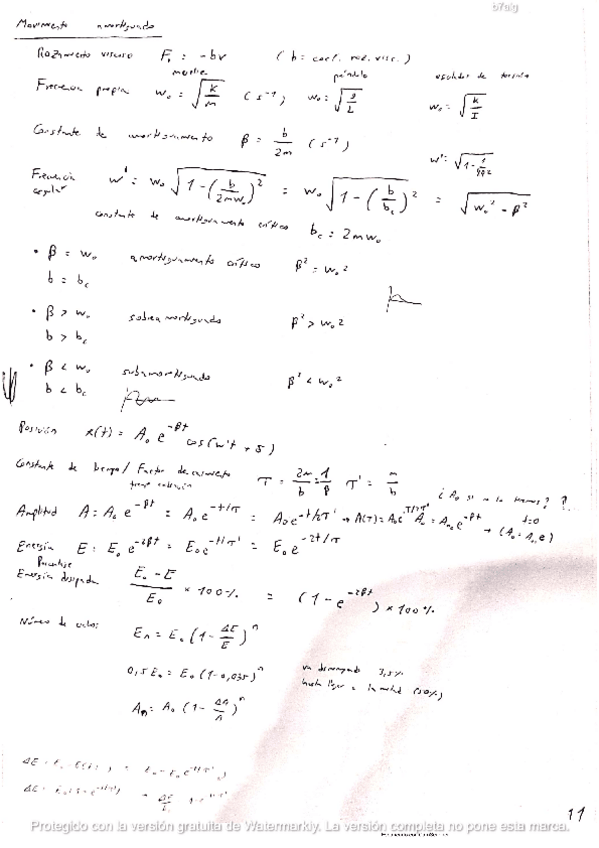 b7aig
Movimiento amortiguado
Rozamiento viscoso F₁ = -bv (b = coef. roz. visc.)
muelle péndulo oscilador de torsión
Frecuencia propia w₀ = √(K/m) (s⁻¹) w₀ = √(g/L) w₀ = √(K/I)
Constante de amortiguamiento β = b/2m (s⁻¹)
Frecuencia angular w' = w₀ √(1-(b/2mw₀)²) = w₀ √(1-(b/b_c)²) = √(w₀² - β²)
constante de amortiguamiento crítico b_c = 2mw₀
• β = w₀ amortiguamiento crítico β² = w₀²
b = b_c
• β > w₀ sobreamortiguado β² > w₀²
b > b_c
• β < w₀ subamortiguado β² < w₀²
b < b_c
Posición x(t) = A₀ e^(-βt) cos(w't + δ)
Constante de tiempo / Factor de τ = 2m/b = 1/β τ' = m/b
¿A₀ si no la tenemos?
Amplitud A = A₀ e^(-βt) = A₀ e^(-t/τ) = A₀ e^(-t/2τ')
Energía E = E₀ e^(-2βt) = E₀ e^(-t/τ') = E₀ e^(-2t/τ)
Porcentaje
Energía disipada (E₀ - E)/E₀ × 100% = (1 - e^(-2βt)) × 100%
Número de ciclos: Eₙ = E₀ (1 - ΔE/E)ⁿ
0,5 E₀ = E₀ (1 - 0,035)ⁿ va disminuyendo 3,5%
hasta llegar a la mitad (50%)
Aₙ = A₀ (1 - ΔA/A)ⁿ
11
Protegido con la versión gratuita de Watermarkly. La versión completa no pone esta marca.